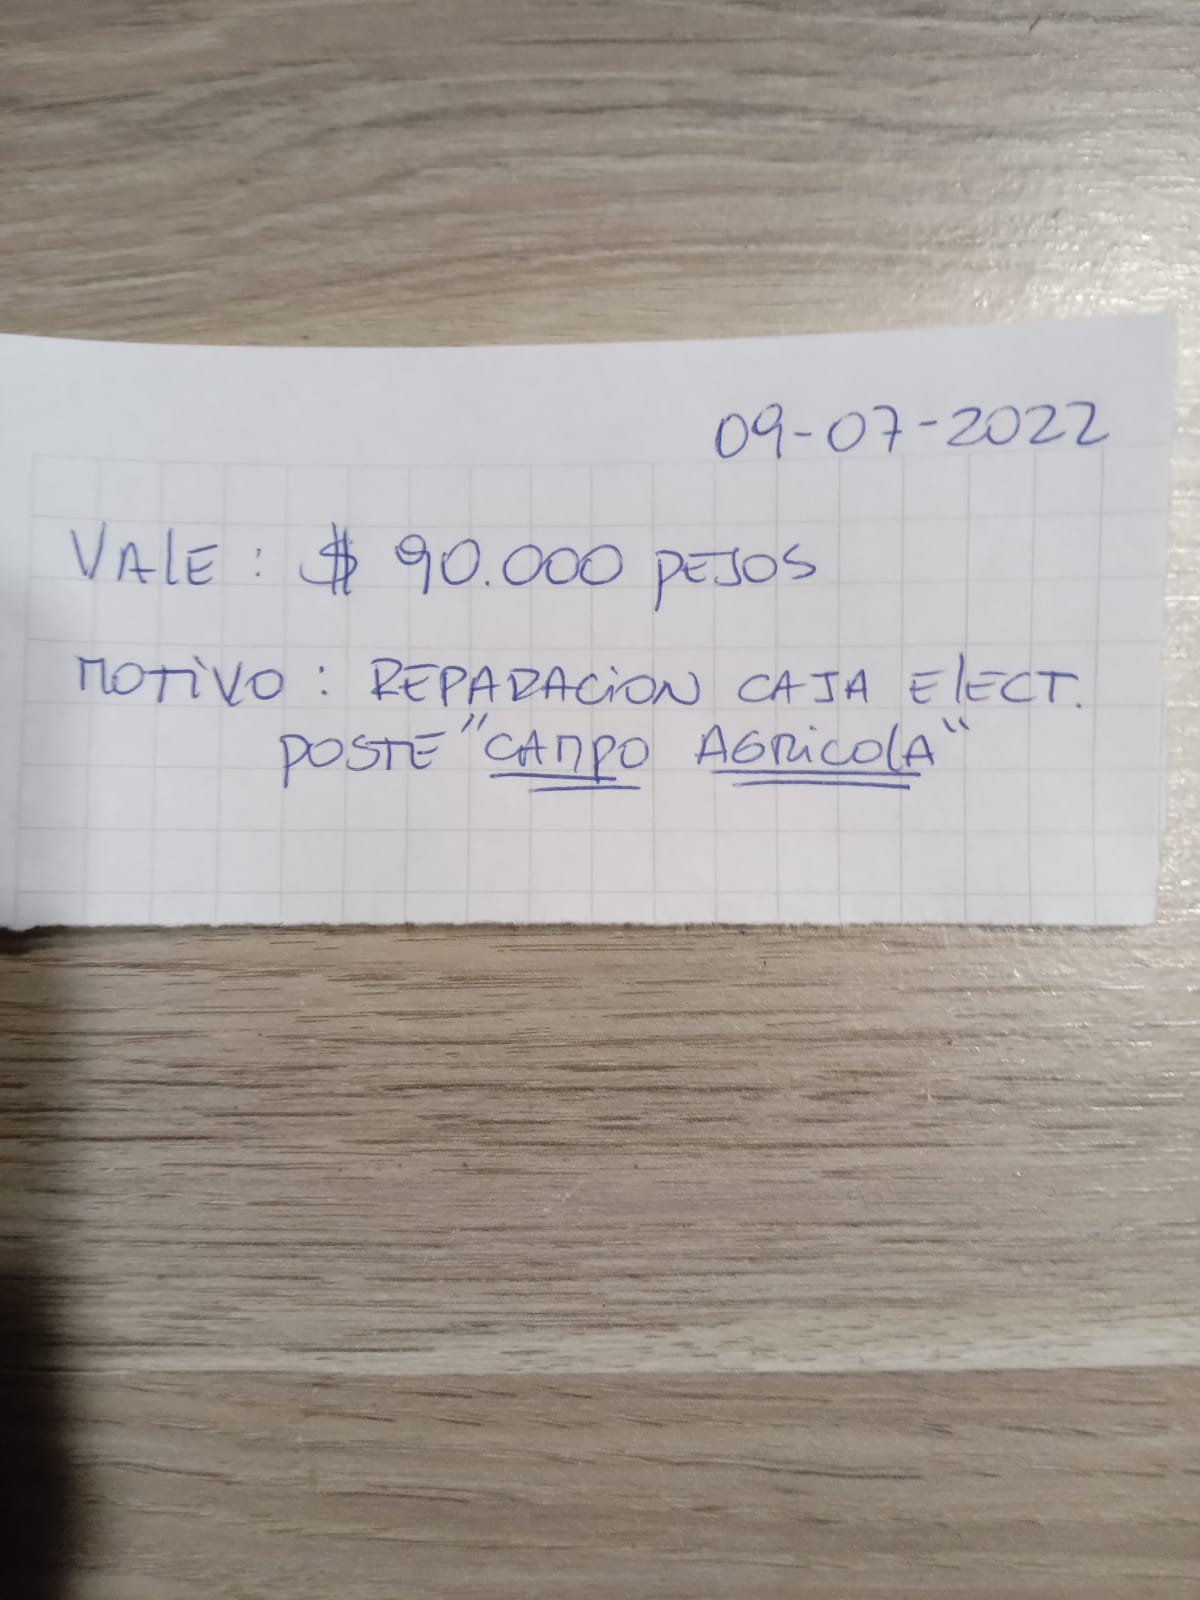 09-07-2022
VALE : $ 90.000 PESOS
MOTIVO : REPARACION CAJA ELECT.
POSTE "CAMPO AGRICOLA"